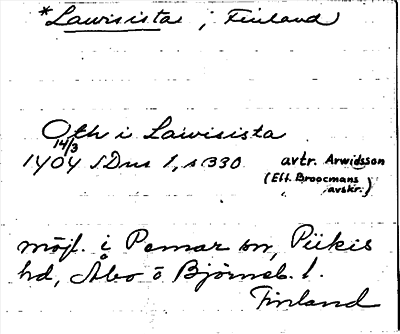 *Lawisista, Finland
Oth i Lawisista
14/3
1404 SDns 1, s 330 avtr. Arwidsson
(Eft. Broocmans
avskr.)
möjl. i Pemar sn, Piikis
hd, Åbo o Björneb. l.
Finland